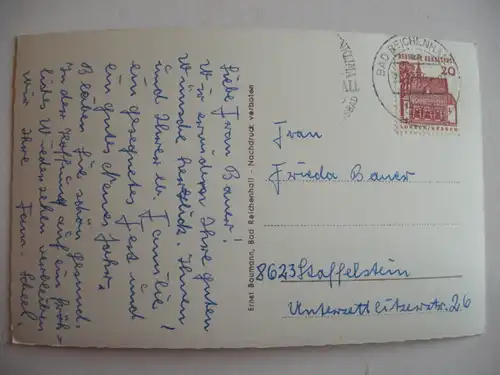 Liebe Frau Bauer!
Wir erwidern Ihre guten
Wünsche herzlich. Ihnen
und Ihrer lb. Familie!
ein gesegnetes Fest und
ein gutes Neues Jahr.
Bleiben Sie schön gesund.
In der Hoffnung auf ein fröh-
liches Wiedersehen verbleiben
wir Ihre Fam.
Ernst Baumann, Bad Reichenhall - Nachdruck verboten
BAD REICHENHALL
DEUTSCHE BUNDESPOST
20
LORSCH/HESSEN
Frau
Frieda Bauer
8623 Staffelstein
Unterzettlitzerstr. 26